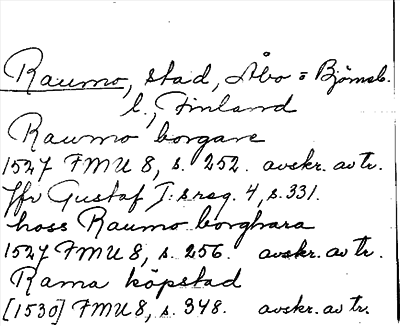 Raumo, stad, Åbo = Björneb.
l., Finland
Raumo borgare
1527 FMU 8, s. 252. avskr. av tr.
Jfr Gustaf I:s reg. 4, s. 331.
hoss Raumo borghara
1527 FMU 8, s. 256. avskr. av tr.
Rama köpstad
[1530] FMU 8, s. 348. avskr. av tr.